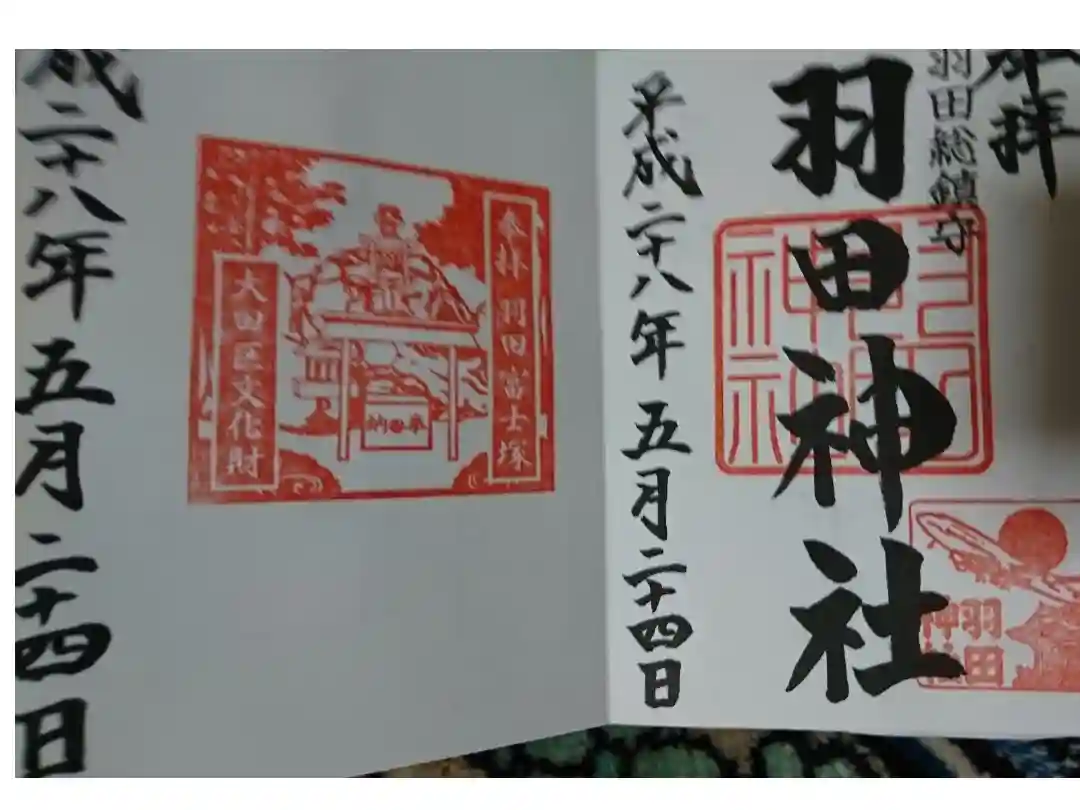 奉拝
羽田総鎮守
羽田神社
平成二十八年五月二十四日
羽田
神社
参拝 羽田富士塚
奉納
大田区文化財
成二十八年五月二十四日